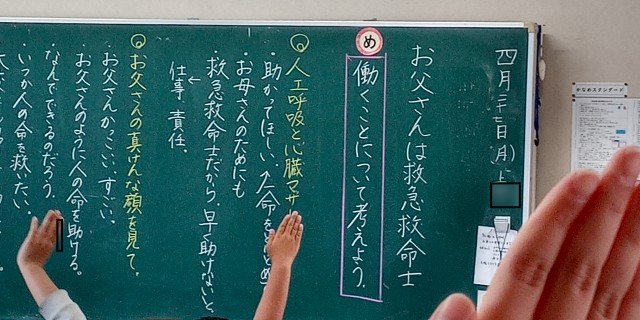 四月二十二日(月)
お父さんは救急救命士
め
働くことについて考えよう。
人工呼吸と心臓マサ
・助かってほしい、
・お母さんのためにも
・救急救命士だから、早く助けないと
仕事 責任。
お父さんの真けんな顔を見て。
・お父さんかっこいい、すごい。
・お父さんのように人の命を助ける。
・なんでできるのだろう。
・いつか人の命を救いたい。
かなめスタンダード